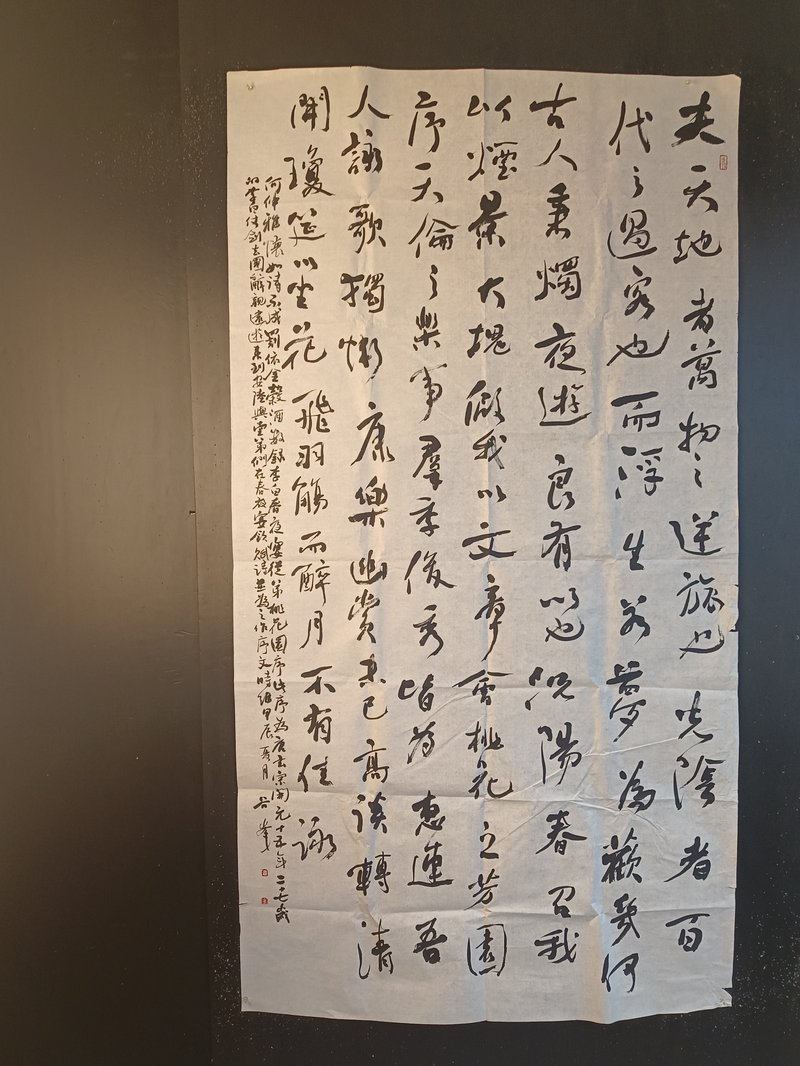 夫天地者萬物之逆旅也光陰者百
代之過客也而浮生若夢為歡幾何
古人秉燭夜遊良有以也況陽春召我
以煙景大塊假我以文章會桃花之芳園
序天倫之樂事群季俊秀皆為惠連吾
人詠歌獨慚康樂幽賞未已高談轉清
開瓊筵以坐花飛羽觴而醉月不有佳詠
何伸雅懷如詩不成罰依金穀酒數錄李白春夜宴從弟桃花園序此序為唐玄宗開元十五年二十七歲
的李白仗劍去國辭親遠遊來到安陸與堂弟們在春夜宴飲賦詩並為之作序文時維甲辰夏月